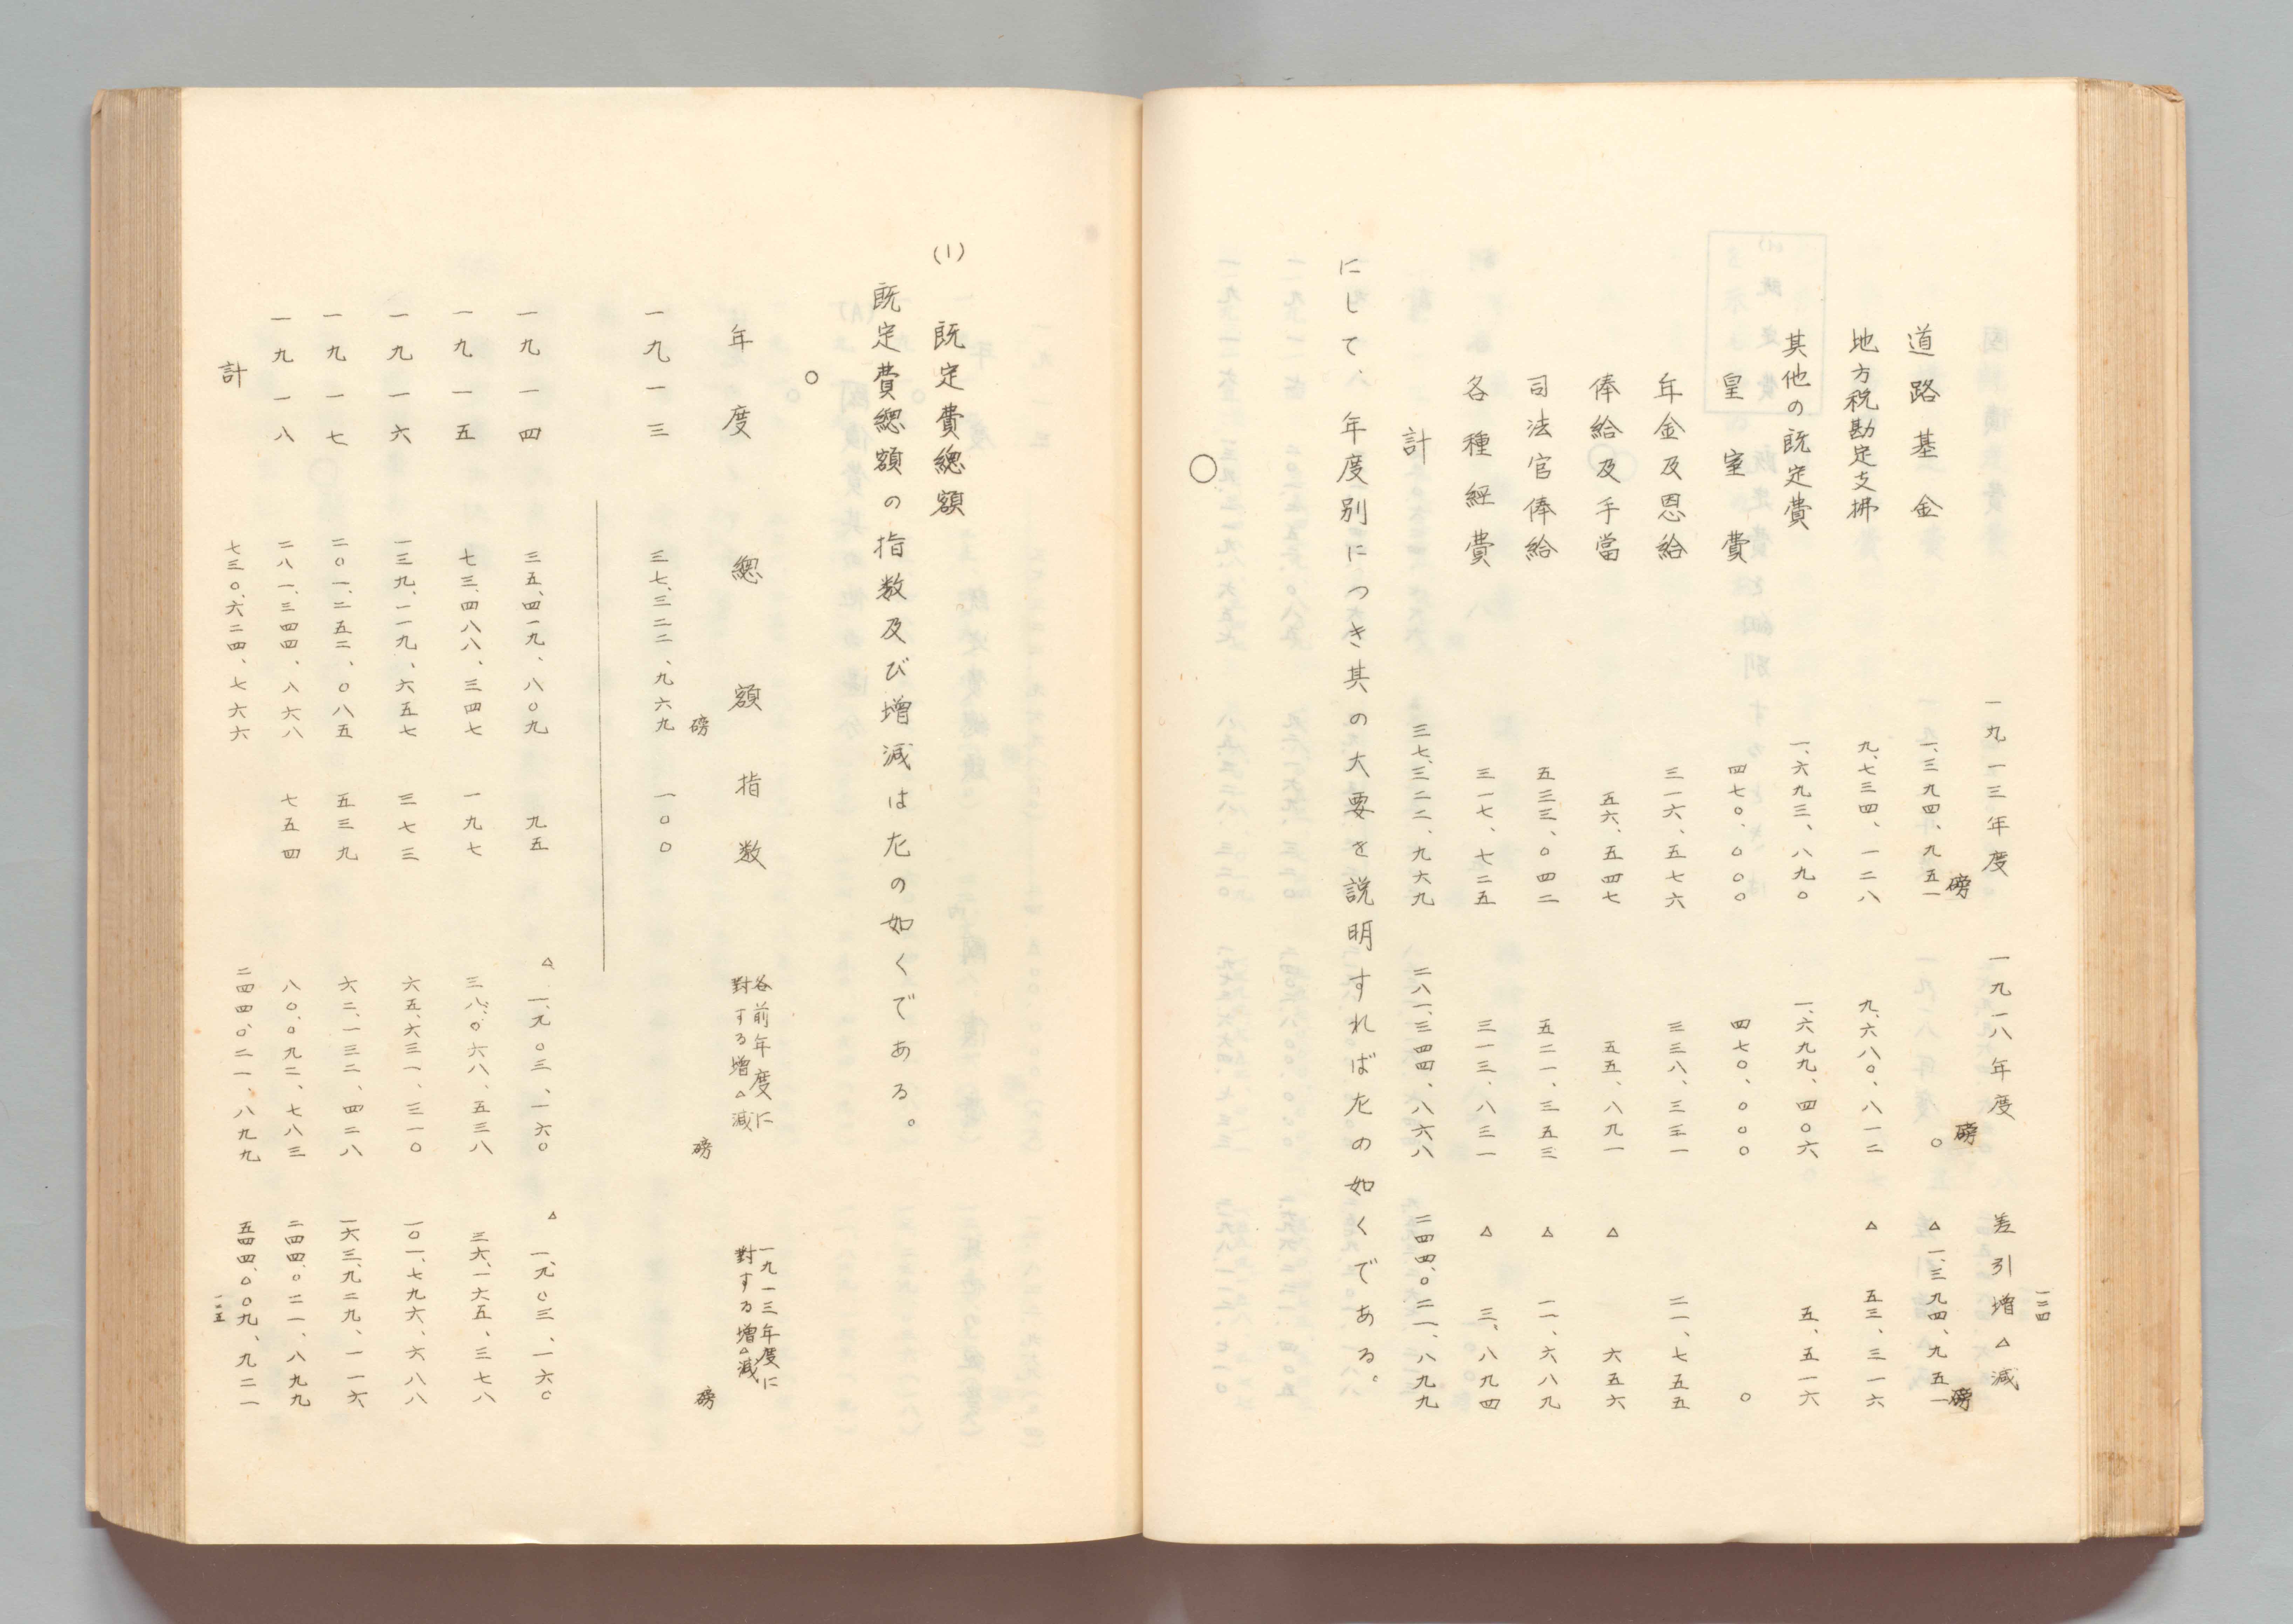 一二四
一九一三年度 一九一八年度 差引増△減
磅 磅 磅
道路基金 一、三九四、九五一 〇 △一、三九四、九五一
地方税勘定支拂 九、七三四、一二八 九、六八〇、八一二 △五三、三一六
其他の既定費 一、六九三、八九〇 一、六九九、四〇六 五、五一六
皇室費 四七〇、〇〇〇 四七〇、〇〇〇 〇
年金及恩給 三一六、五七六 三三八、三三一 二一、七五五
俸給及手當 五六、五四七 五五、八九一 △六五六
司法官俸給 五三三、〇四二 五二一、三五三 △一一、六八九
各種經費 三一七、七二五 三一三、八三一 △三、八九四
計 三七、三二二、九六九 二八一、三四四、八六八 二四四、〇二一、八九九
にして、年度別につき其の大要を説明すれば左の如くである。
〇
(1) 既定費總額
既定費總額の指数及び増減は左の如くである。
〇
年度 總額 指数 各前年度に對する増△減 一九一三年度に對する増△減
磅 磅 磅
一九一三 三七、三二二、九六九 一〇〇
一九一四 三五、四一九、八〇九 九五 △一、九〇三、一六〇 △一、九〇三、一六〇
一九一五 七三、四八八、三四七 一九七 三八、〇六八、五三八 三六、一六五、三七八
一九一六 一三九、一一九、六五七 三七三 六五、六三一、三一〇 一〇一、七九六、六八八
一九一七 二〇一、二五二、〇八五 五三九 六二、一三二、四二八 一六三、九二九、一一六
一九一八 二八一、三四四、八六八 七五四 八〇、〇九二、七八三 二四四、〇二一、八九九
計 七三〇、六二四、七六六 二四四〇、二一、八九九 五四四、〇〇九、九二一
一二五